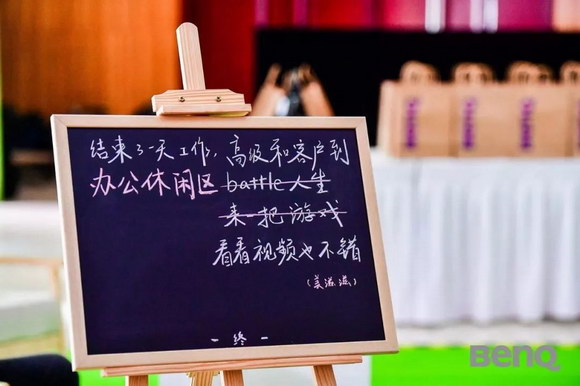 结束了一天工作，高级和客户到
办公休闲区 battle 人生
来一把游戏
看看视频也不错
（美滋滋）
— 终 —
BenQ